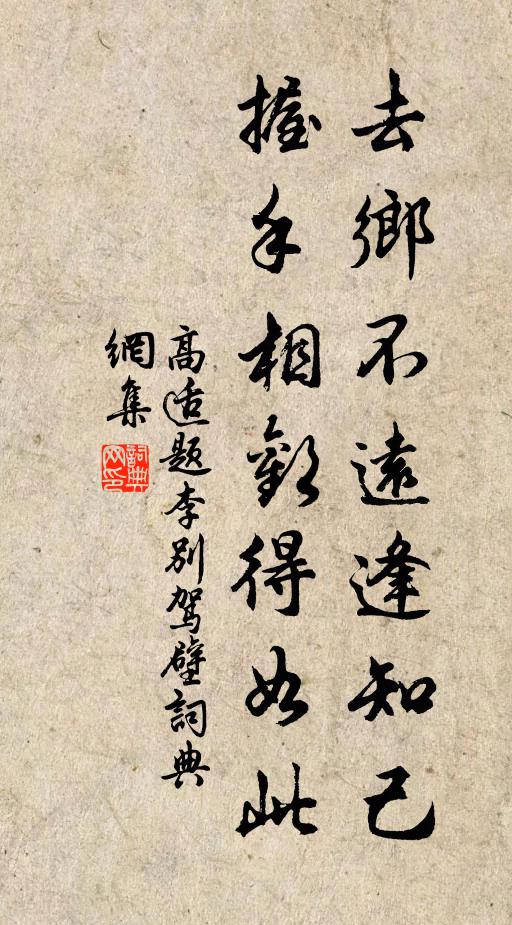 去鄉不遠逢知己
握手相歡得如此
高适題李別駕壁詞典
網集
詞典
网印